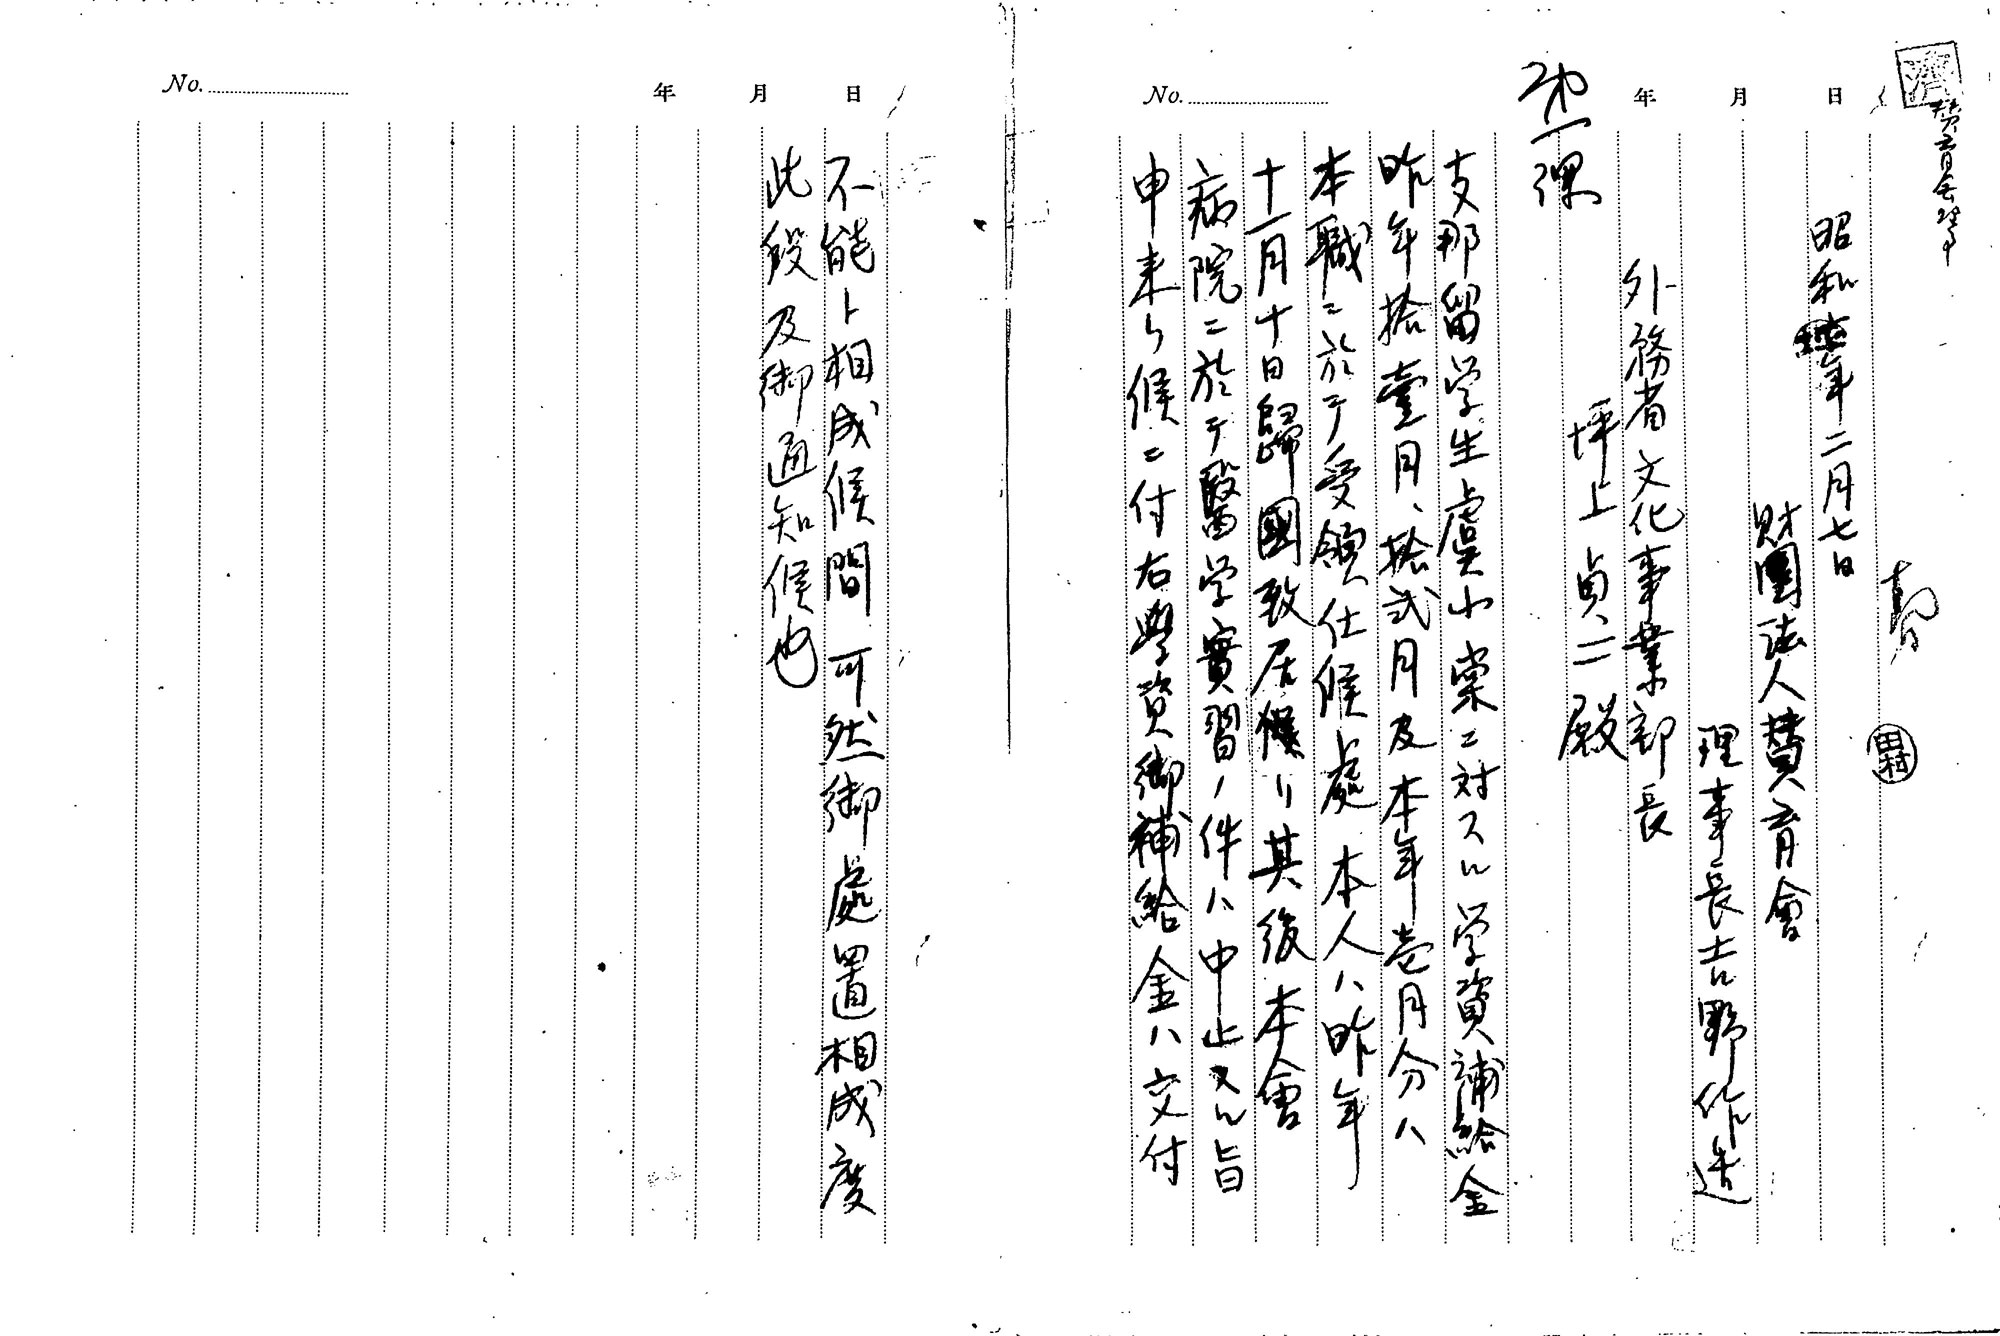 濟
賛育會
No. 年 月 日
昭和 年二月七日
財團法人賛育會
理事長吉野作造
外務省文化事業部長
坪上貞二殿
第一課
支那留学生虞小棠ニ対スル学資補給金
昨年拾壹月、拾弐月及本年壱月分ハ
本職ニ於テ受領仕候處本人ハ昨年
十一月十日歸國致居候リ其後本會
病院ニ於テ醫学實習ノ件ハ中止スル旨
申来リ候ニ付右學資御補給金ハ交付
田村
No. 年 月 日
不能ト相成候間可然御處置相成度
此段及御通知候也